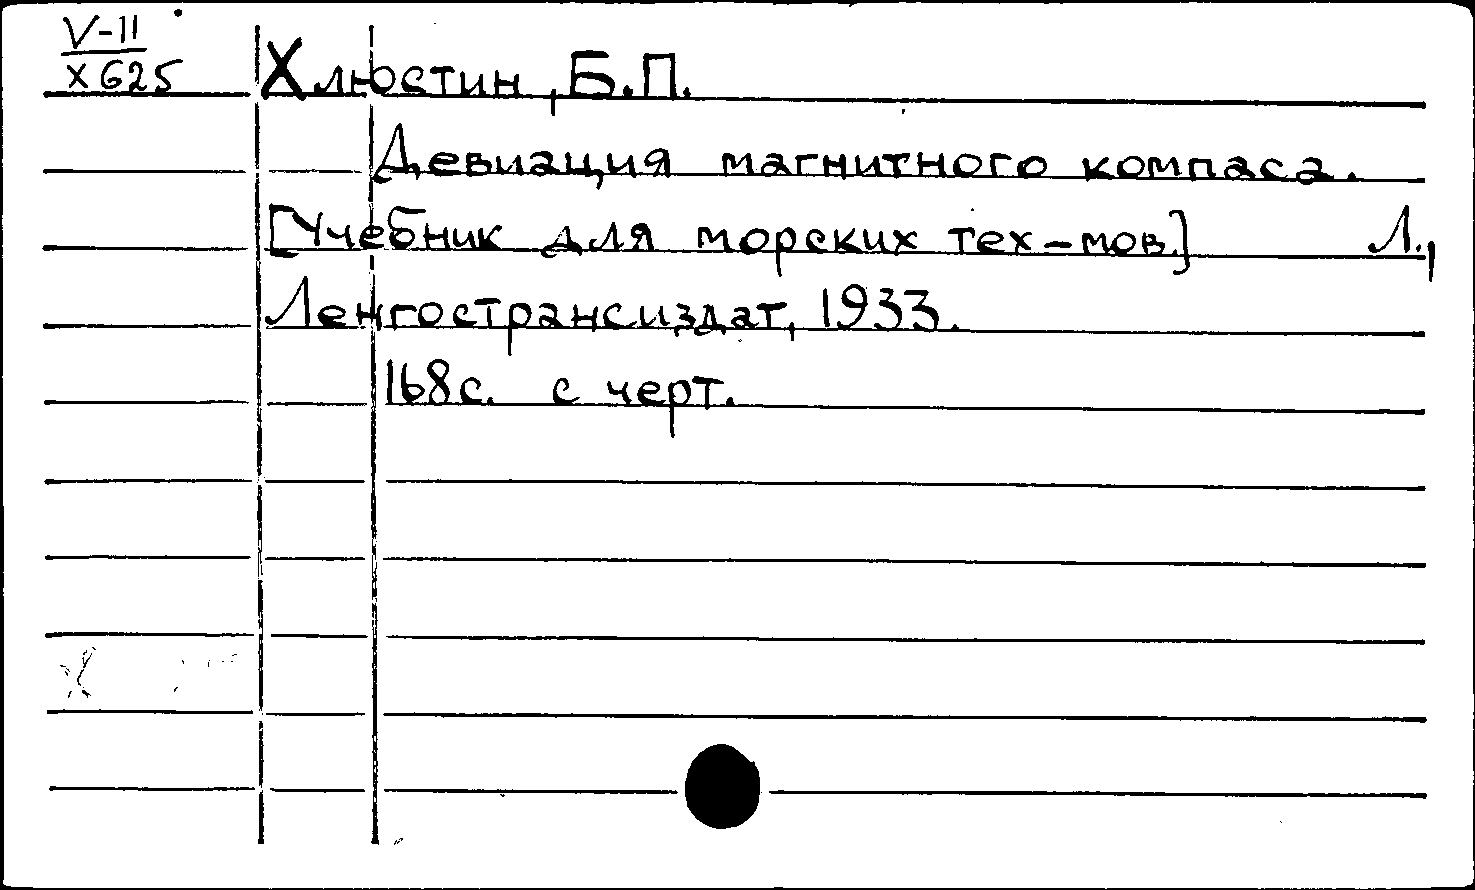 V-11
Х625
Хлюстин, Б.П.
Девиация магнитного компаса.
[Учебник для морских тех-мов.] Л.,
Ленгострансиздат, 1933.
168с. с черт.